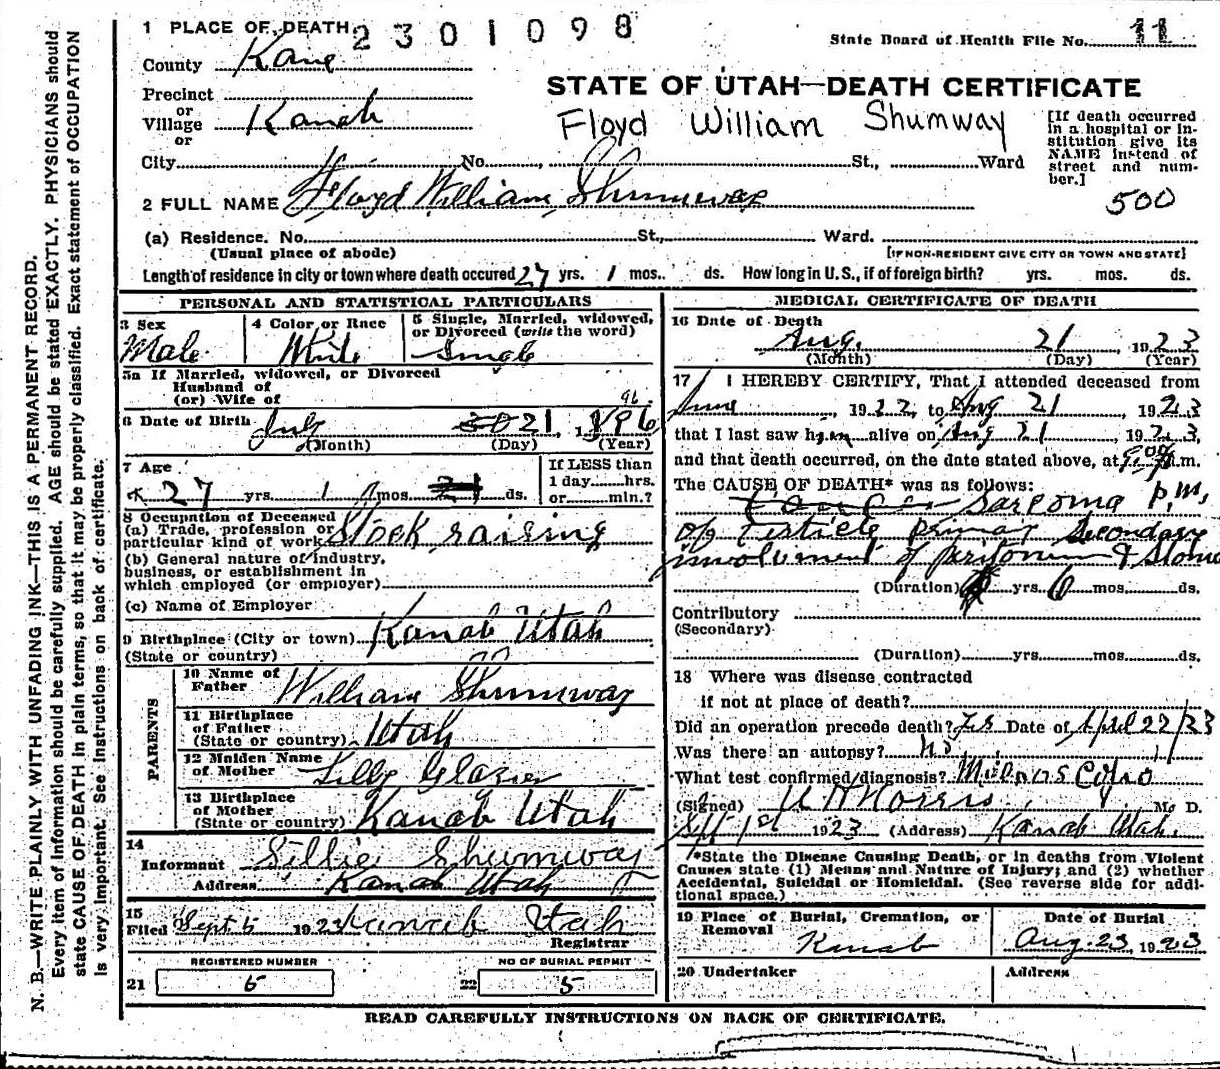 N. B.—WRITE PLAINLY WITH UNFADING INK—THIS IS A PERMANENT RECORD.
Every item of information should be carefully supplied. AGE should be stated EXACTLY. PHYSICIANS should
state CAUSE OF DEATH in plain terms, so that it may be properly classified. Exact statement of OCCUPATION
is very important. See instructions on back of certificate.
1 PLACE OF DEATH 2301098
State Board of Health File No. 11
County Kane
STATE OF UTAH—DEATH CERTIFICATE
Precinct
or
Village Kanab
or
Floyd William Shumway
[If death occurred
in a hospital or in-
stitution give its
NAME instead of
street and num-
ber.]
City No. St., Ward
2 FULL NAME Floyd William Shumway
500
(a) Residence. No. St., Ward.
(Usual place of abode) [IF NON-RESIDENT GIVE CITY OR TOWN AND STATE]
Length of residence in city or town where death occured 27 yrs. 1 mos. ds. How long in U.S., if of foreign birth? yrs. mos. ds.
PERSONAL AND STATISTICAL PARTICULARS
3 Sex 4 Color or Race 5 Single, Married, widowed,
or Divorced (write the word)
Male White Single
5a If Married, widowed, or Divorced
Husband of
(or) Wife of
96
6 Date of Birth July 21, 1896
(Month) (Day) (Year)
7 Age If LESS than
1 day hrs.
27 yrs. 1 mos. 21 ds. or min.?
8 Occupation of Deceased
(a) Trade, profession or
particular kind of work Stock raising
(b) General nature of industry,
business, or establishment in
which employed (or employer)
(c) Name of Employer
9 Birthplace (City or town) Kanab Utah
(State or country)
PARENTS
10 Name of
Father William Shumway
11 Birthplace
of Father
(State or country) Utah
12 Maiden Name
of Mother Lilly Glazier
13 Birthplace
of Mother
(State or country) Kanab Utah
14
Informant Lillie Shumway
Address Kanab Utah
15
Filed Sept 5 1923 Kanab Utah
Registrar
REGISTERED NUMBER NO OF BURIAL PERMIT
21 5 22 5
MEDICAL CERTIFICATE OF DEATH
16 Date of Death
Aug. 21, 1923
(Month) (Day) (Year)
17 I HEREBY CERTIFY, That I attended deceased from
June, 1922, to Aug 21, 1923
that I last saw him alive on Aug 21, 1923,
and that death occurred, on the date stated above, at m.
The CAUSE OF DEATH* was as follows:
Cancer Sarcoma P.M.
of Testicle primary Secondary
involvment of peritoneum & Stomc
(Duration) yrs. 6 mos. ds.
Contributory
(Secondary)
(Duration) yrs. mos. ds.
18 Where was disease contracted
if not at place of death?
Did an operation precede death? Yes Date of April 22/23
Was there an autopsy? No
What test confirmed diagnosis?
(Signed) Norris, M. D.
Sept 1st 1923 (Address) Kanab Utah.
*State the Disease Causing Death, or in deaths from Violent
Causes state (1) Means and Nature of Injury; and (2) whether
Accidental, Suicidal or Homicidal. (See reverse side for addi-
tional space.)
19 Place of Burial, Cremation, or
Removal Kanab
Date of Burial
Aug. 23 1923
20 Undertaker Address
READ CAREFULLY INSTRUCTIONS ON BACK OF CERTIFICATE.